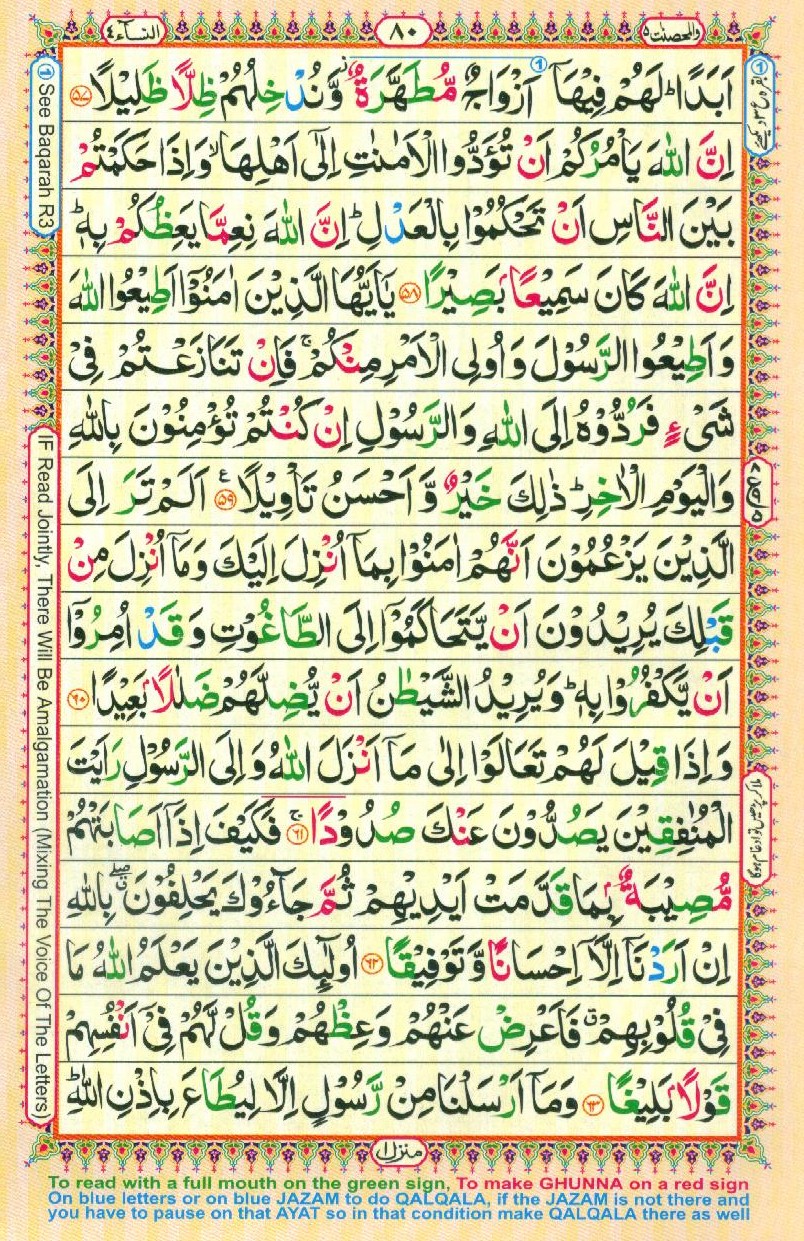 النساء ٤
٨٠
والمحصنت ٥
اَبَدًا ؕ لَهُمْ فِيْهَاۤ اَزْوَاجٌ مُّطَهَّرَةٌ ؗ وَّنُدْخِلُهُمْ ظِلًّا ظَلِيْلًا ﴿۵۷﴾
اِنَّ اللّٰهَ يَاْمُرُكُمْ اَنْ تُؤَدُّوا الْاَمٰنٰتِ اِلٰۤى اَهْلِهَا ۙ وَاِذَا حَكَمْتُمْ
بَيْنَ النَّاسِ اَنْ تَحْكُمُوْا بِالْعَدْلِ ؕ اِنَّ اللّٰهَ نِعِمَّا يَعِظُكُمْ بِهٖ ؕ
اِنَّ اللّٰهَ كَانَ سَمِيْعًۢا بَصِيْرًا ﴿۵۸﴾ يٰۤاَيُّهَا الَّذِيْنَ اٰمَنُوْۤا اَطِيْعُوا اللّٰهَ
وَاَطِيْعُوا الرَّسُوْلَ وَاُولِى الْاَمْرِ مِنْكُمْ ۚ فَاِنْ تَنَازَعْتُمْ فِىْ
شَىْءٍ فَرُدُّوْهُ اِلَى اللّٰهِ وَالرَّسُوْلِ اِنْ كُنْتُمْ تُؤْمِنُوْنَ بِاللّٰهِ
وَالْيَوْمِ الْاٰخِرِ ؕ ذٰلِكَ خَيْرٌ وَّاَحْسَنُ تَاْوِيْلًا ﴿۵۹﴾ ع اَلَمْ تَرَ اِلَى
الَّذِيْنَ يَزْعُمُوْنَ اَنَّهُمْ اٰمَنُوْا بِمَاۤ اُنْزِلَ اِلَيْكَ وَمَاۤ اُنْزِلَ مِنْ
قَبْلِكَ يُرِيْدُوْنَ اَنْ يَّتَحَاكَمُوْۤا اِلَى الطَّاغُوْتِ وَقَدْ اُمِرُوْۤا
اَنْ يَّكْفُرُوْا بِهٖ ؕ وَيُرِيْدُ الشَّيْطٰنُ اَنْ يُّضِلَّهُمْ ضَلٰلًۢا بَعِيْدًا ﴿۶۰﴾
وَاِذَا قِيْلَ لَهُمْ تَعَالَوْا اِلٰى مَاۤ اَنْزَلَ اللّٰهُ وَاِلَى الرَّسُوْلِ رَاَيْتَ
الْمُنٰفِقِيْنَ يَصُدُّوْنَ عَنْكَ صُدُوْدًا ۚ ﴿۶۱﴾ فَكَيْفَ اِذَاۤ اَصَابَتْهُمْ
مُّصِيْبَةٌۢ بِمَا قَدَّمَتْ اَيْدِيْهِمْ ثُمَّ جَآءُوْكَ يَحْلِفُوْنَ ۖ ق بِاللّٰهِ
اِنْ اَرَدْنَاۤ اِلَّاۤ اِحْسَانًا وَّتَوْفِيْقًا ﴿۶۲﴾ اُولٰٓئِكَ الَّذِيْنَ يَعْلَمُ اللّٰهُ مَا
فِىْ قُلُوْبِهِمْ ق فَاَعْرِضْ عَنْهُمْ وَعِظْهُمْ وَقُلْ لَّهُمْ فِىْۤ اَنْفُسِهِمْ
قَوْلًۢا بَلِيْغًا ﴿۶۳﴾ وَمَاۤ اَرْسَلْنَا مِنْ رَّسُوْلٍ اِلَّا لِيُطَاعَ بِاِذْنِ اللّٰهِ ؕ
منزل ١
1 See Baqarah R3
IF Read Jointly, There Will Be Amalgamation (Mixing The Voice Of The Letters)
To read with a full mouth on the green sign, To make GHUNNA on a red sign
On blue letters or on blue JAZAM to do QALQALA, if the JAZAM is not there and
you have to pause on that AYAT so in that condition make QALQALA there as well